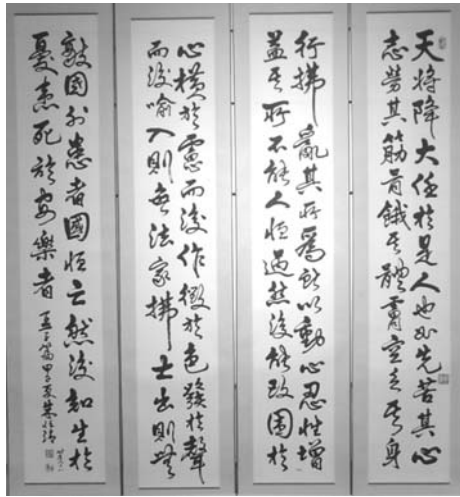 天將降大任於是人也必先苦其心
志勞其筋骨餓其體膚空乏其身
行拂亂其所為所以動心忍性增
益其所不能人恒過然後能改困於
心橫於慮而後作徵於色發於聲
而後喻入則無法家拂士出則無
敵國外患者國恒亡然後知生於
憂患死於安樂者 孟子篇 甲子夏朱